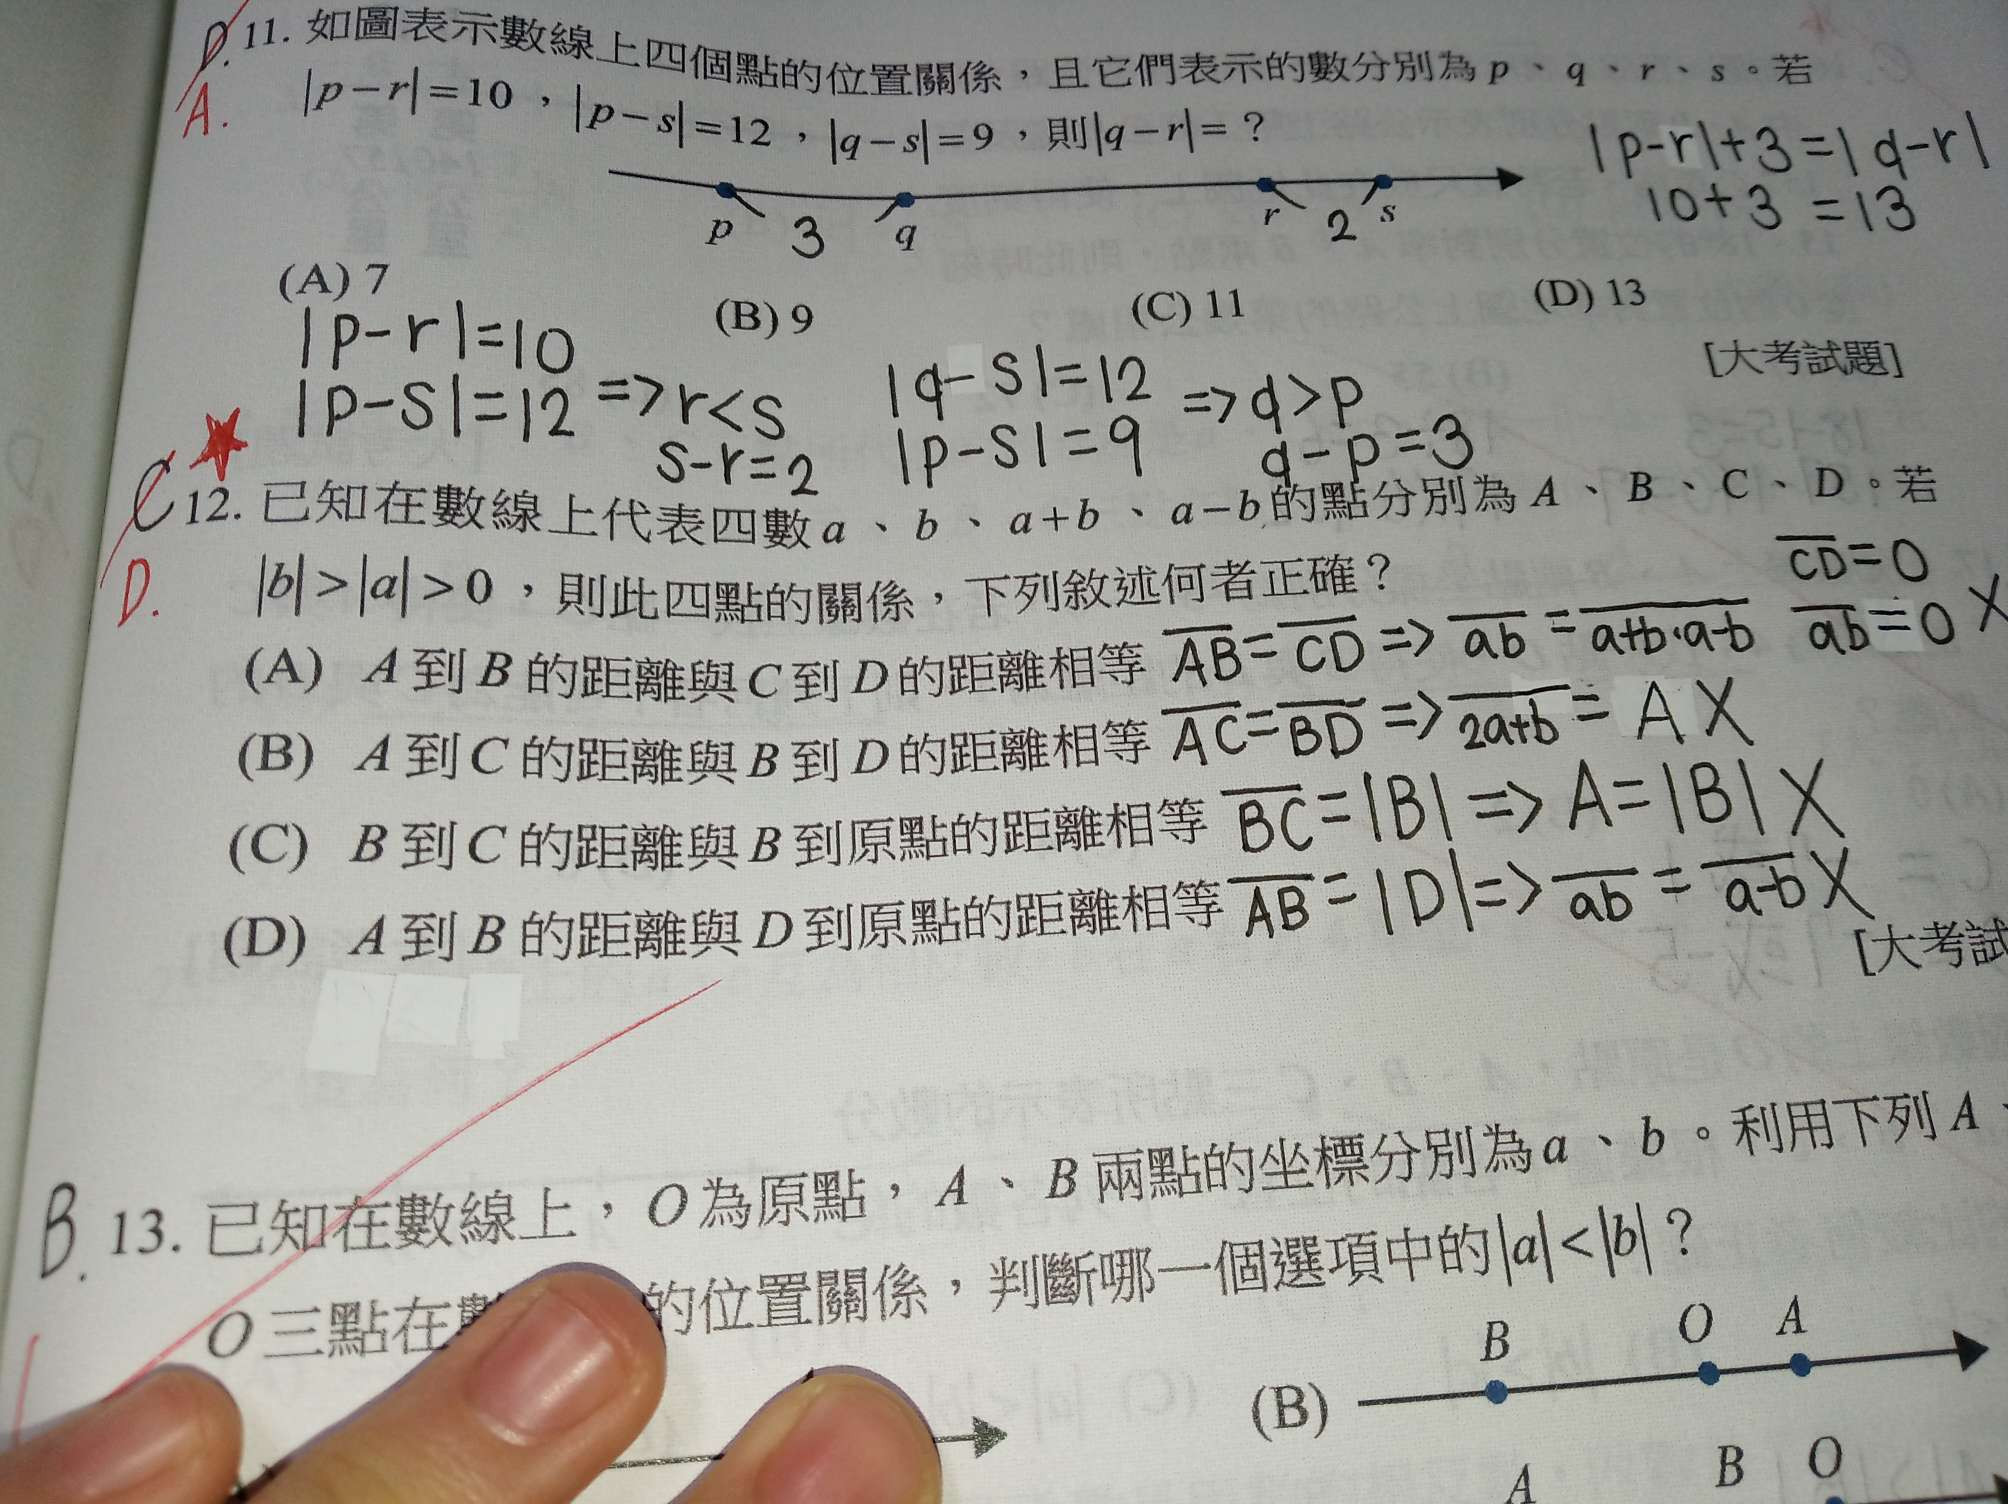 D.
A.
11. 如圖表示數線上四個點的位置關係，且它們表示的數分別為 p、q、r、s。若
|p－r|＝10，|p－s|＝12，|q－s|＝9，則|q－r|＝？
|p-r|+3=|q-r|
10+3=13
p 3 q r 2 s
(A) 7 (B) 9 (C) 11 (D) 13
[大考試題]
|p-r|=10
|p-s|=12 => r<s
s-r=2
|q-s|=12
|p-s|=9 => q>p
q-p=3
C
D.
12. 已知在數線上代表四數 a、b、a＋b、a－b 的點分別為 A、B、C、D。若
|b|＞|a|＞0，則此四點的關係，下列敘述何者正確？
(A) A 到 B 的距離與 C 到 D 的距離相等 AB=CD => ab=a+b·a-b CD=0 ab=0 X
(B) A 到 C 的距離與 B 到 D 的距離相等 AC=BD => 2a+b=A X
(C) B 到 C 的距離與 B 到原點的距離相等 BC=|B| => A=|B| X
(D) A 到 B 的距離與 D 到原點的距離相等 AB=|D| => ab=a-b X
[大考試
B.
13. 已知在數線上，O 為原點，A、B 兩點的坐標分別為 a、b。利用下列 A、
O 三點在 的位置關係，判斷哪一個選項中的|a|＜|b|？
(B) B O A
A B O